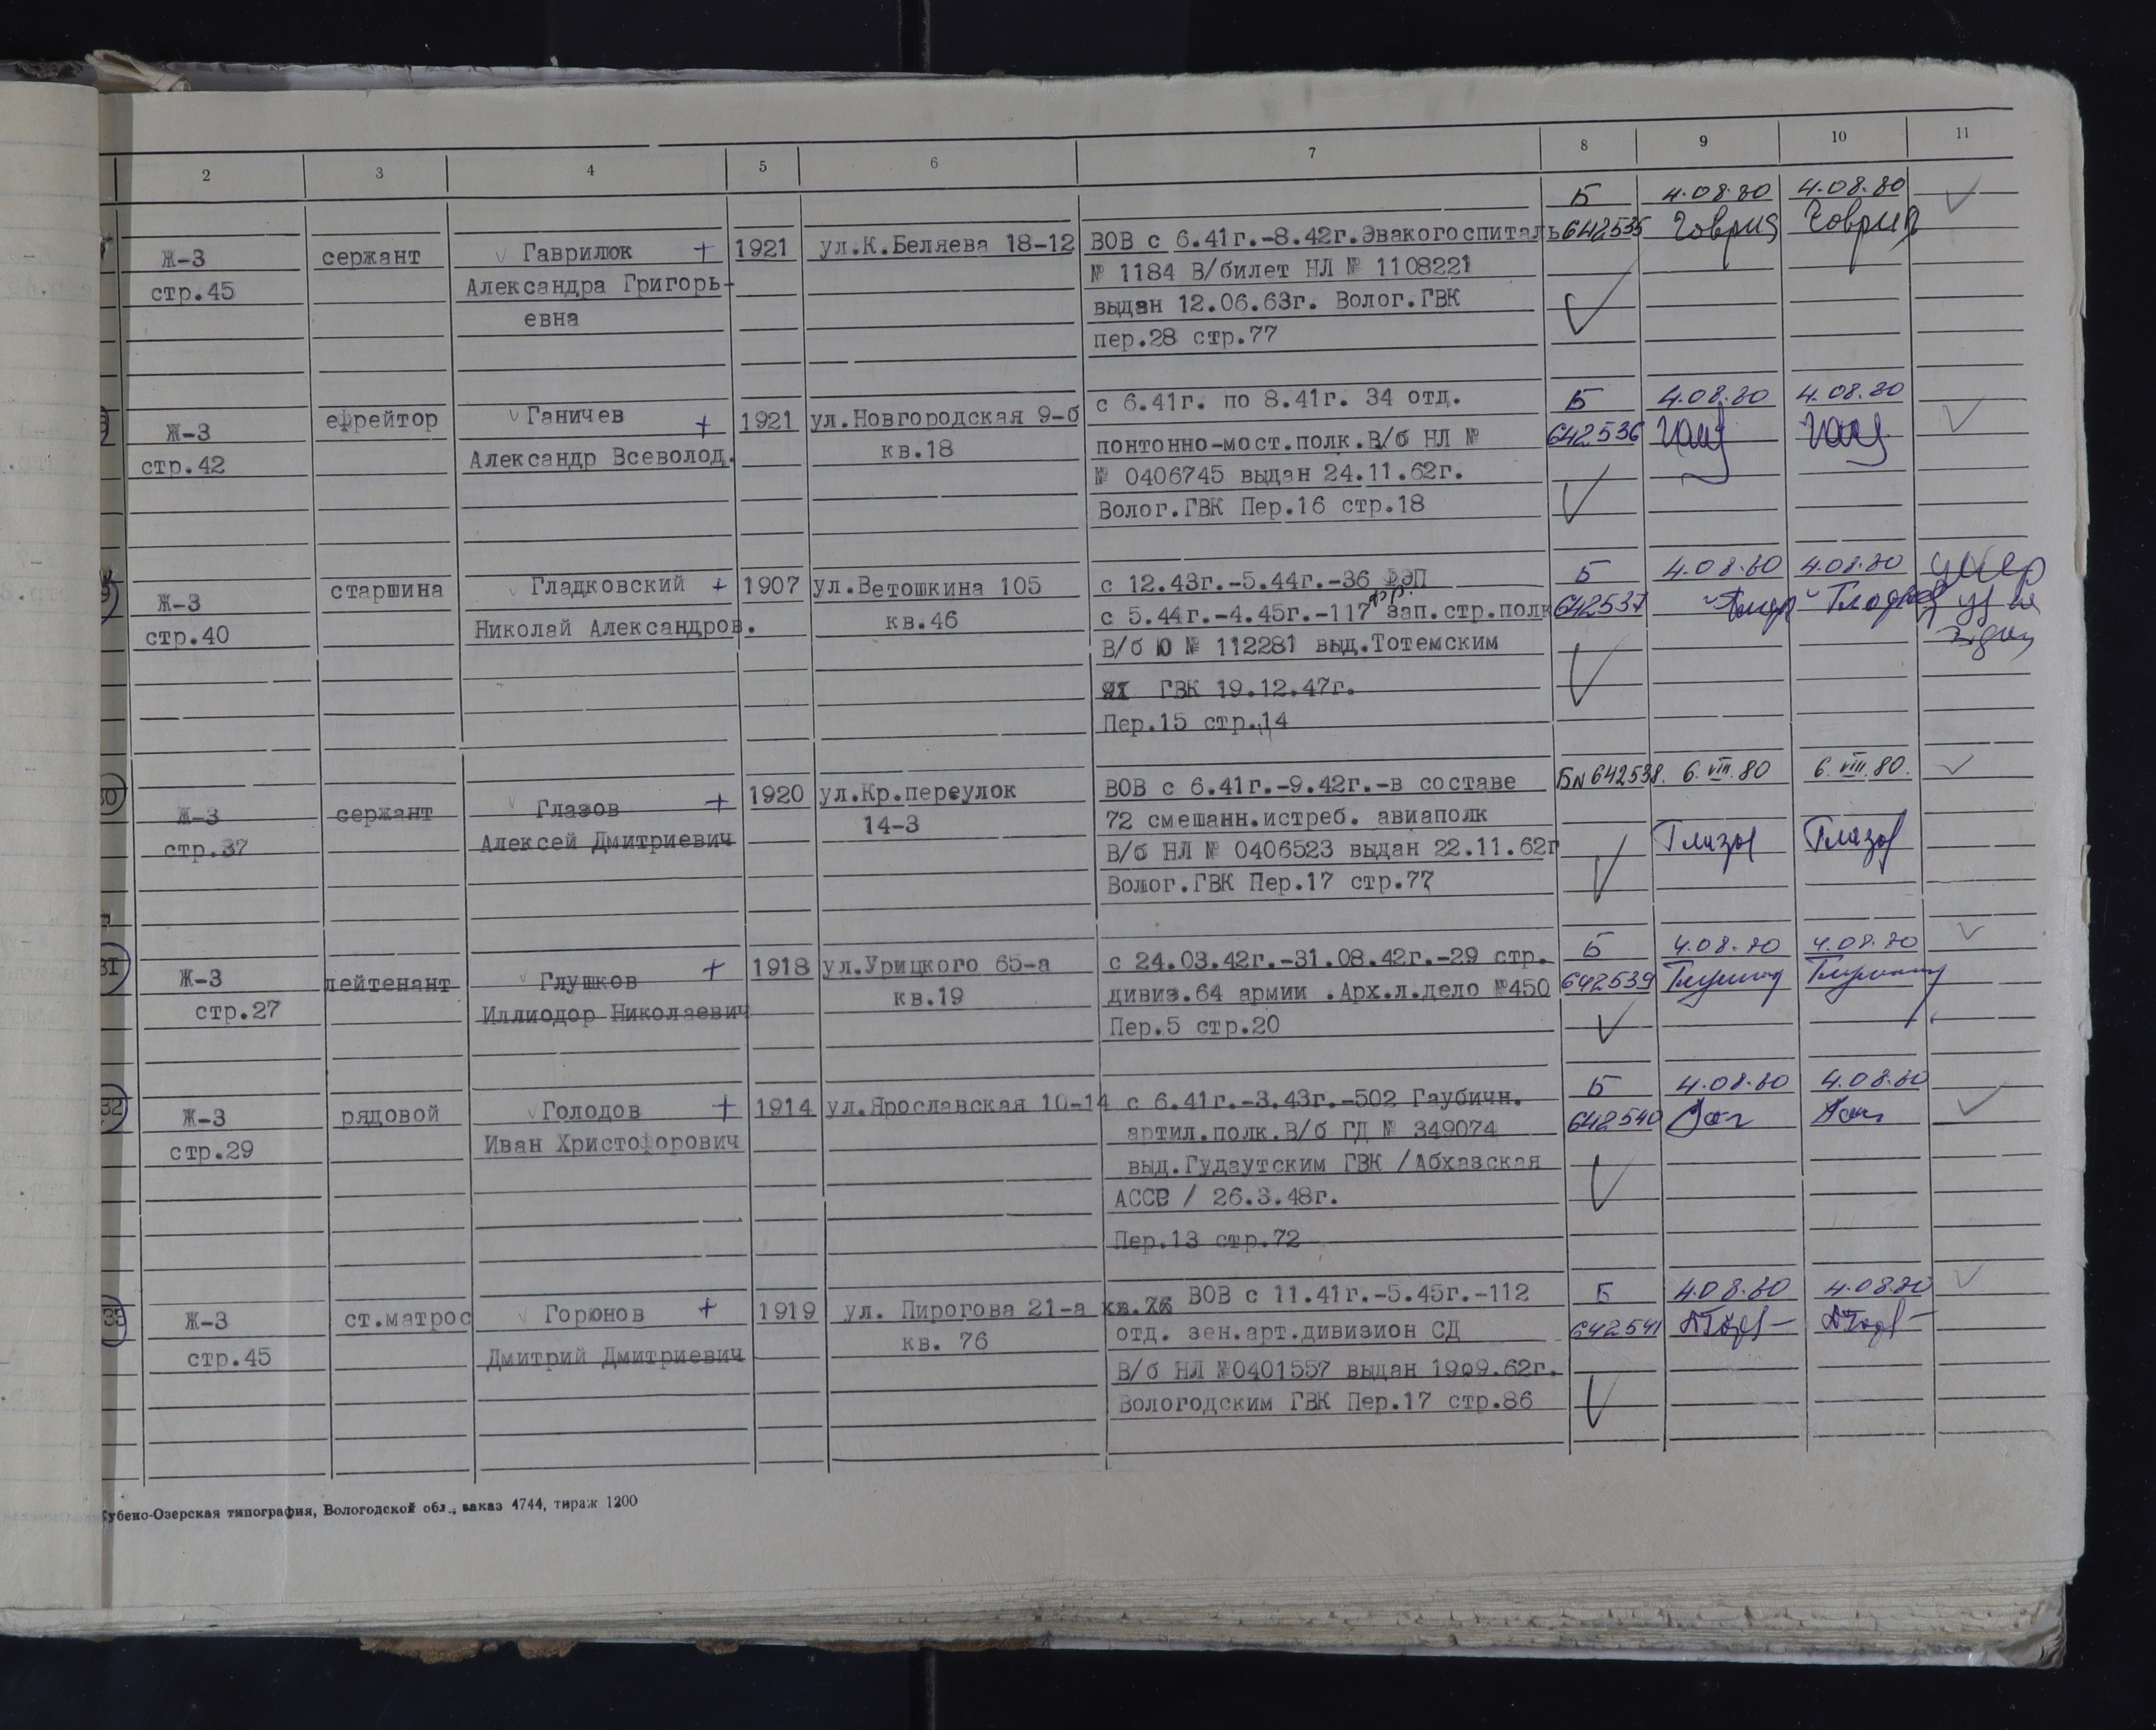 2 3 4 5 6 7 8 9 10 11
Б 4.08.80 4.08.80
Ж-3 сержант Гаврилюк + 1921 ул.К.Беляева 18-12 ВОВ с 6.41г.-8.42г.Эвакогоспиталь 642535 Гаврил Гаврил
стр.45 Александра Григорь- № 1184 В/билет НЛ № 1108221
евна выдан 12.06.63г. Волог.ГВК
пер.28 стр.77
с 6.41г. по 8.41г. 34 отд. Б 4.08.80 4.08.80
Ж-3 ефрейтор Ганичев + 1921 ул.Новгородская 9-б понтонно-мост.полк.В/б НЛ № 642536
стр.42 Александр Всеволод. кв.18 № 0406745 выдан 24.11.62г.
Волог.ГВК Пер.16 стр.18
Ж-3 старшина Гладковский + 1907 ул.Ветошкина 105 с 12.43г.-5.44г.-36 ФЭП Б 4.08.80 4.08.80 умер
стр.40 Николай Александров. кв.46 с 5.44г.-4.45г.-117 зап.стр.полк 642537
В/б Ю № 112281 выд.Тотемским
ГВК 19.12.47г.
Пер.15 стр.14
30 Ж-3 сержант Глазов + 1920 ул.Кр.переулок ВОВ с 6.41г.-9.42г.-в составе Б№642538. 6.VIII.80 6.VIII.80.
стр.37 Алексей Дмитриевич 14-3 72 смешанн.истреб. авиаполк
В/б НЛ № 0406523 выдан 22.11.62г Глазов Глазов
Волог.ГВК Пер.17 стр.77
31 Ж-3 лейтенант Глушков + 1918 ул.Урицкого 65-а с 24.03.42г.-31.08.42г.-29 стр. Б 4.08.80 4.08.80
стр.27 Иллиодор Николаевич кв.19 дивиз.64 армии .Арх.л.дело №450 642539
Пер.5 стр.20
32 Ж-3 рядовой Голодов + 1914 ул.Ярославская 10-14 с 6.41г.-3.43г.-502 Гаубичн. Б 4.08.80 4.08.80
стр.29 Иван Христофорович артил.полк.В/б ГД № 349074 642540
выд.Гудаутским ГВК /Абхазская
АССР / 26.3.48г.
Пер.13 стр.72
33 Ж-3 ст.матрос Горюнов + 1919 ул. Пирогова 21-а кв.76 ВОВ с 11.41г.-5.45г.-112 Б 4.08.80 4.08.80
стр.45 Дмитрий Дмитриевич кв. 76 отд. зен.арт.дивизион СД 642541
В/б НЛ №0401557 выдан 19о9.62г.
Вологодским ГВК Пер.17 стр.86
Кубено-Озерская типография, Вологодской обл., заказ 4744, тираж 1200